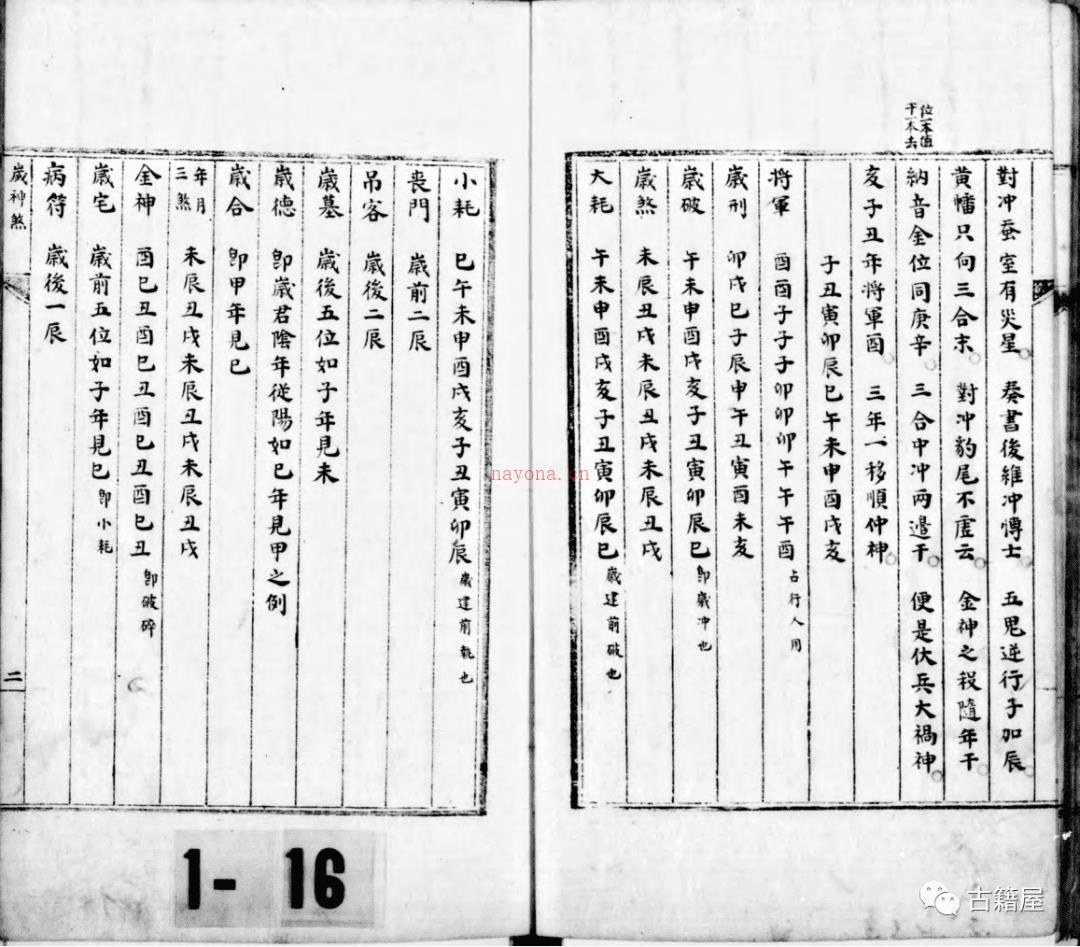 位一本值
干一本去
對冲蚕室有炎星 奏書後維冲慱士 五鬼逆行子加辰
黄幡只向三合末 對冲豹尾不虗云 金神之殺隨年干
納音金位同庚辛 三合中冲兩邉干 便是伏兵大禍神
亥子丑年將軍酉 三年一移順仲神
子丑寅卯辰巳午未申酉戌亥
將軍 酉酉子子子卯卯卯午午午酉 占行人用
歲刑 卯戌巳子辰申午丑寅酉未亥
歲破 午未申酉戌亥子丑寅卯辰巳 卽歲冲也
歲煞 未辰丑戌未辰丑戌未辰丑戌
大耗 午未申酉戌亥子丑寅卯辰巳 歲建前破也
小耗 巳午未申酉戌亥子丑寅卯辰 歲建前執也
喪門 歲前二辰
吊客 歲後二辰
歲墓 歲後五位如子年見未
歲德 卽歲君陰年從陽如巳年見甲之例
歲合 卽甲年見巳
年月三煞 未辰丑戌未辰丑戌未辰丑戌
金神 酉巳丑酉巳丑酉巳丑酉巳丑 卽破碎
歲宅 歲前五位如子年見巳 卽小耗
病符 歲後一辰
歲神煞
二
nayona.cn
1- 16
古籍屋